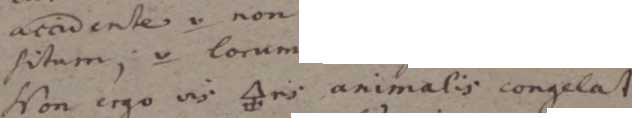 accidente v non
situm, v locum
Non ergo vis 🜍ris animalis congelat